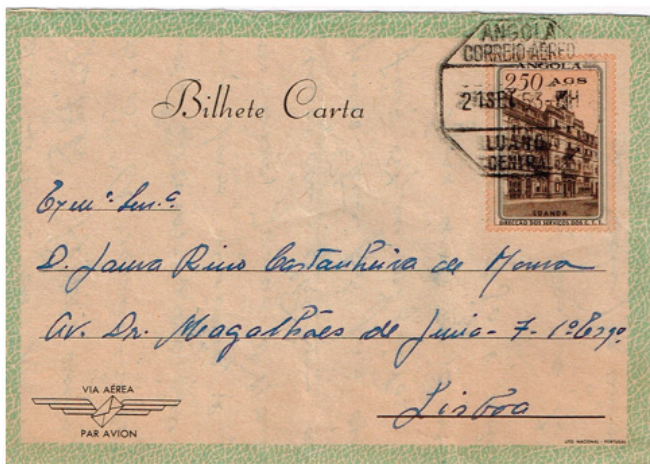 ANGOLA
CORREIO AÉREO
21 SET. 63
LUANDA
CENTRAL
ANGOLA
2$50 AGS
LUANDA
DIRECÇÃO DOS SERVIÇOS DOS C. T. T.
Bilhete Carta
Exmª Snrª
D. Laura Rino Castanheira de Moura
Av. Dr. Magalhães de Lima - 7 - 1º Esqº
Lisboa
VIA AÉREA
PAR AVION
LITO NACIONAL - PORTUGAL